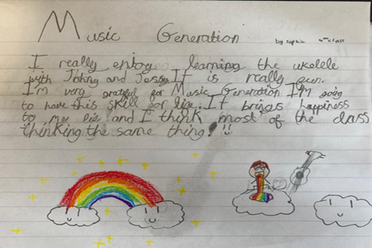 Music Generation by Sophie
I really enjoy learning the ukelele
with Johny and Jessy. It is really fun.
I'm very grateful for Music Generation I'm going
to have this skill for life. It brings happiness
to my life and I think most of the class
thinking the same thing!!!